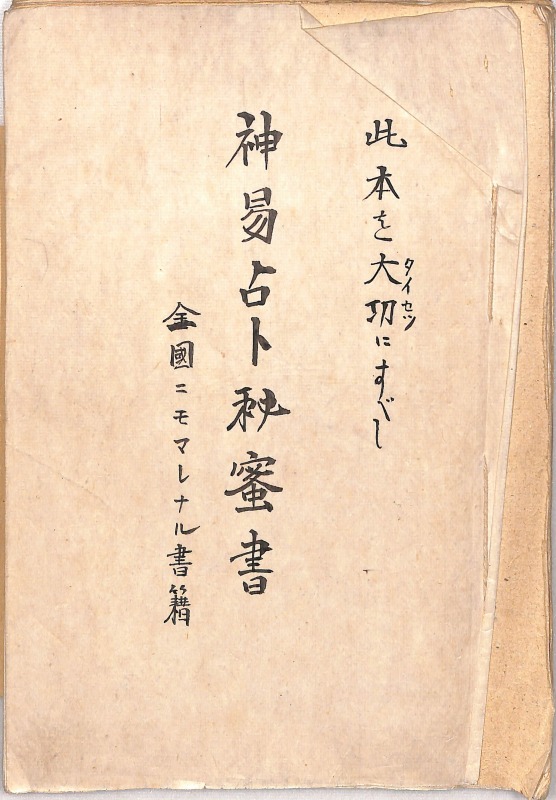 此本を大切にすべし
タイセツ
神易占卜秘蜜書
全國ニモマレナル書籍